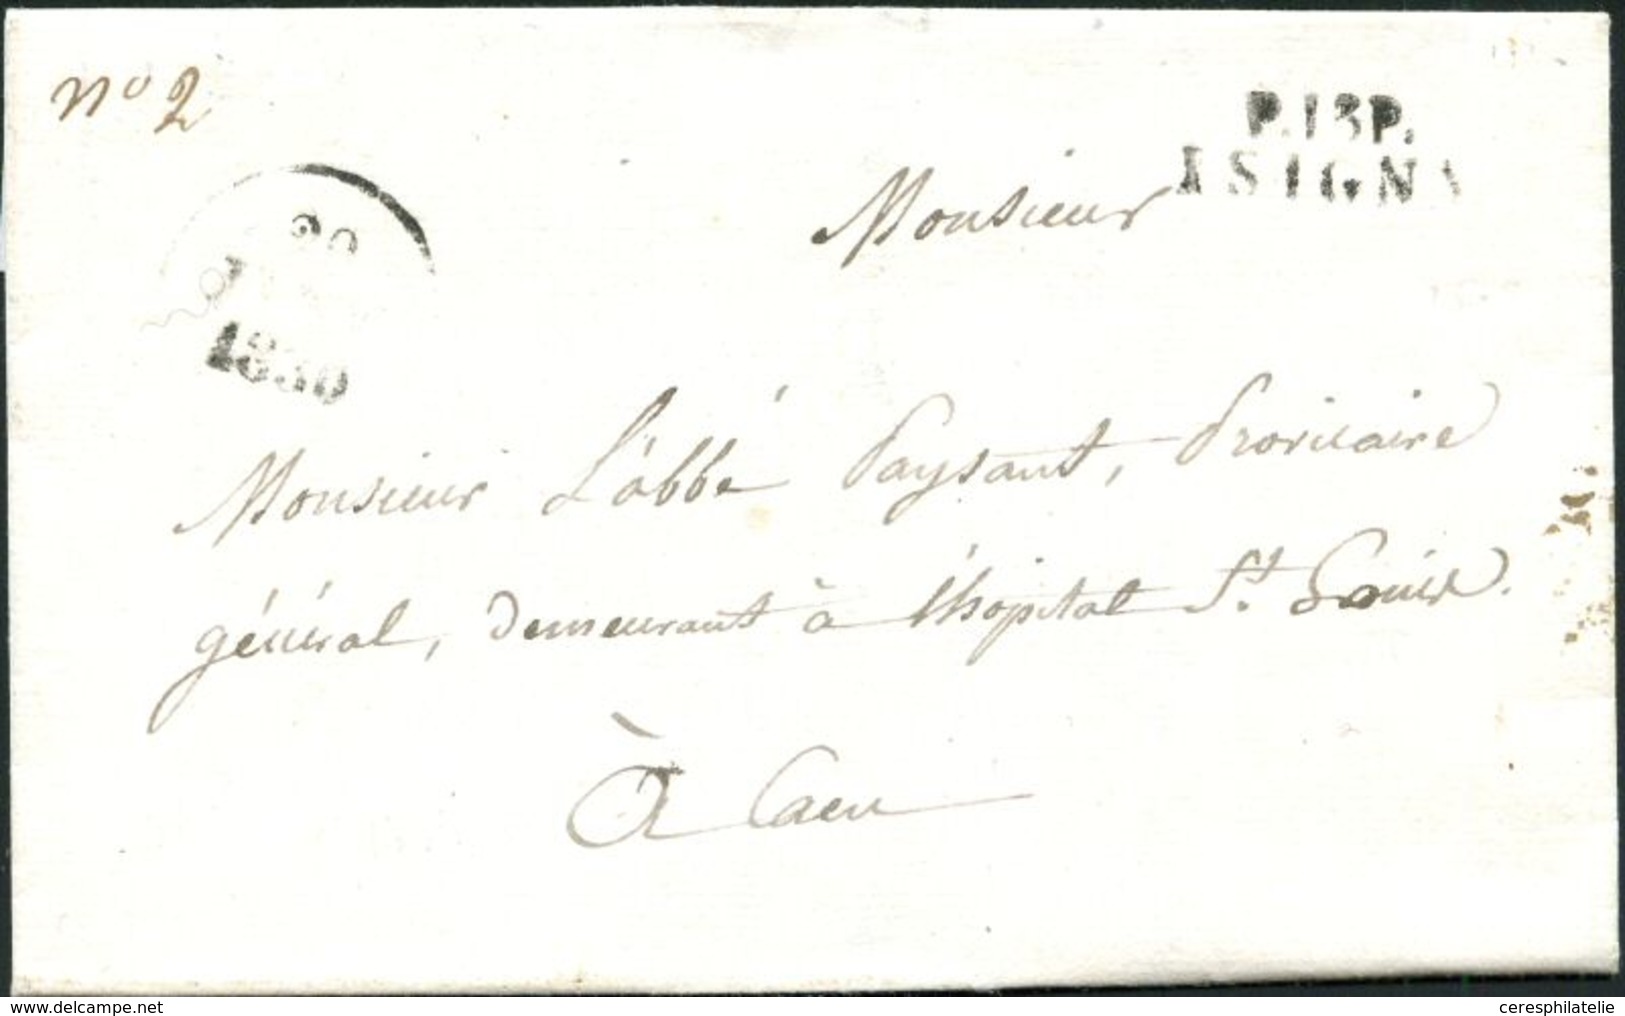 no 2
P.13P.
ISIGNY
20
1830
Monsieur
Monsieur L'abbé Paysant, Provicaire
général, demeurant à l'hôpital St. Louis.
À Caen
delcampe.net
ceresphilatelie